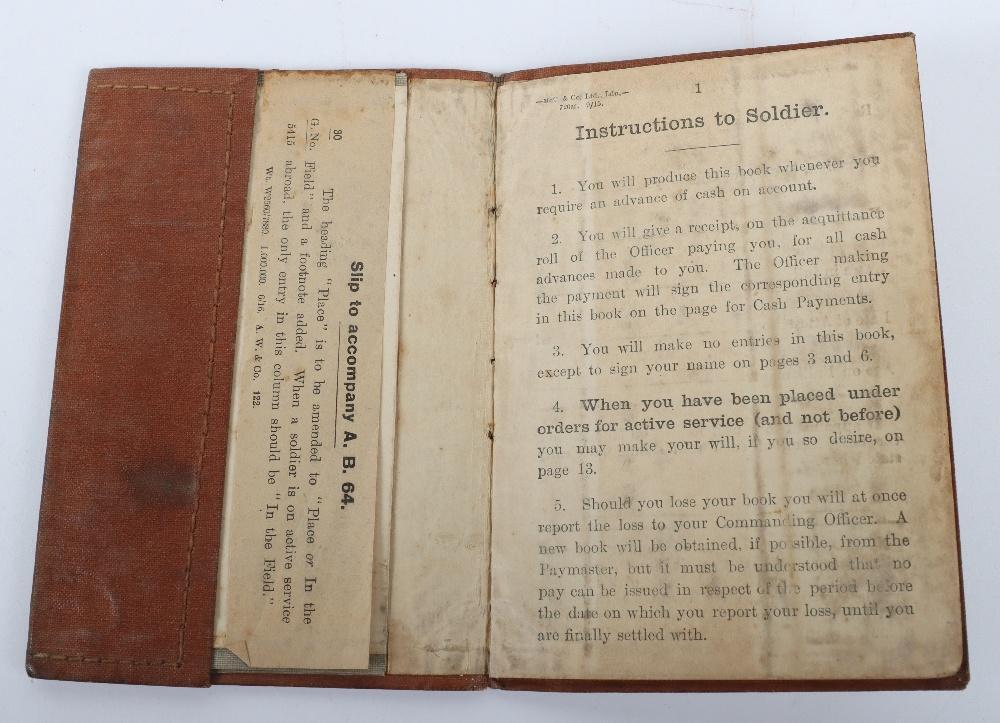 Slip to accompany A. B. 64.
The heading "Place" is to be amended to "Place or In the
Field" and a footnote added. When a soldier is on active service
abroad, the only entry in this column should be "In the Field."
30
G. No.
5415
1,000,000. 6/16. A. W. & Co. 122.
& Co. Ltd., Ldn.—
9/15.
1
Instructions to Soldier.
1. You will produce this book whenever you
require an advance of cash on account.
2. You will give a receipt, on the acquittance
roll of the Officer paying you, for all cash
advances made to you. The Officer making
the payment will sign the corresponding entry
in this book on the page for Cash Payments.
3. You will make no entries in this book,
except to sign your name on pages 3 and 6.
4. When you have been placed under
orders for active service (and not before)
you may make your will, if you so desire, on
page 13.
5. Should you lose your book you will at once
report the loss to your Commanding Officer. A
new book will be obtained, if possible, from the
Paymaster, but it must be understood that no
pay can be issued in respect of the period before
the date on which you report your loss, until you
are finally settled with.